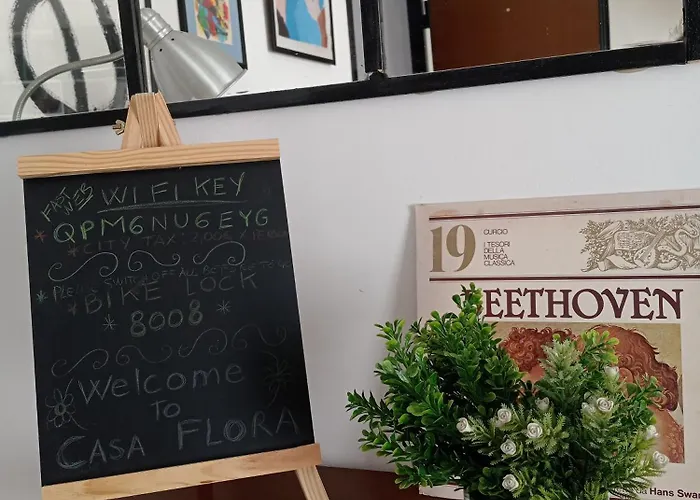 FASTWEB
WIFI KEY
QPM6NU6EYG
* CITY TAX:
* PLEASE SWITCH OFF ALL BEFORE TO GO
* BIKE LOCK *
* 8008
Welcome
To
CASA FLORA
19
CURCIO
I TESORI
DELLA
MUSICA
CLASSICA
BEETHOVEN
da Hans Swa